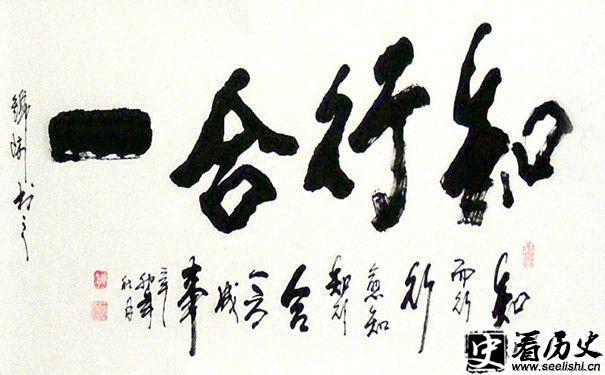 知行合一
知而行行愈知知行合成事
史
看历史
www.seelishi.cn